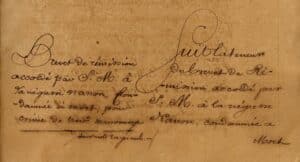 Brevet de rémission
accordé par S. M. à
la négresse nanon Con-
damnée à mort, pour
crime de
Suit la teneur
du brevet de Ré-
mission accordé par
S. M. à la négresse
Nanon, condamnée à
Mort